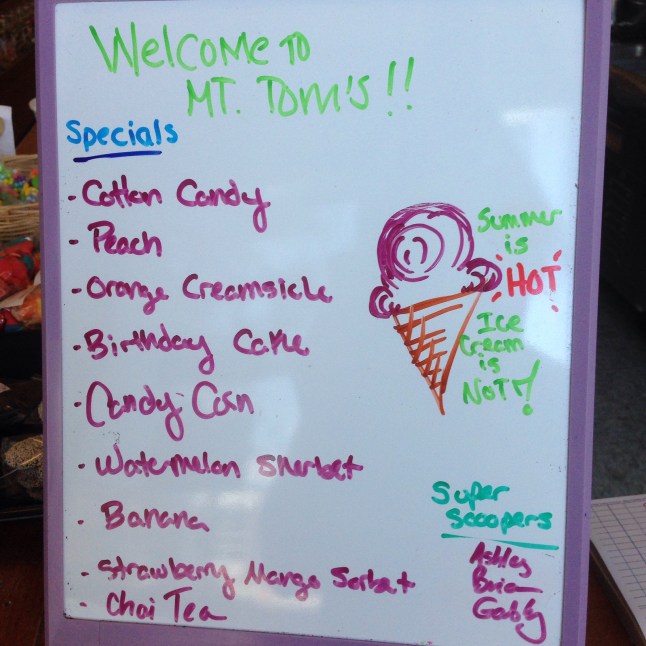 Welcome to
Mt. Tom's!!
Specials
- Cotton Candy
- Peach
- Orange Creamsicle
- Birthday Cake
- Candy Corn
- Watermelon Sherbet
- Banana
- Strawberry Mango Sorbet
- Chai Tea
Summer
is
HOT
Ice
Cream
is
NOT!
Super
Scoopers
Ashley
Brian
Gabby